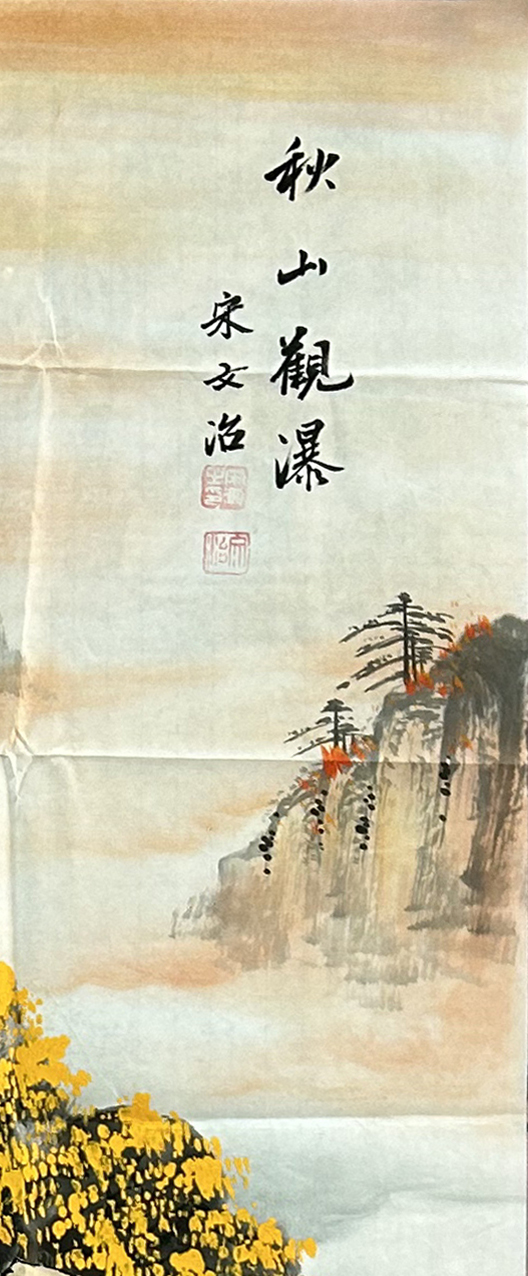 秋山觀瀑
宋文治